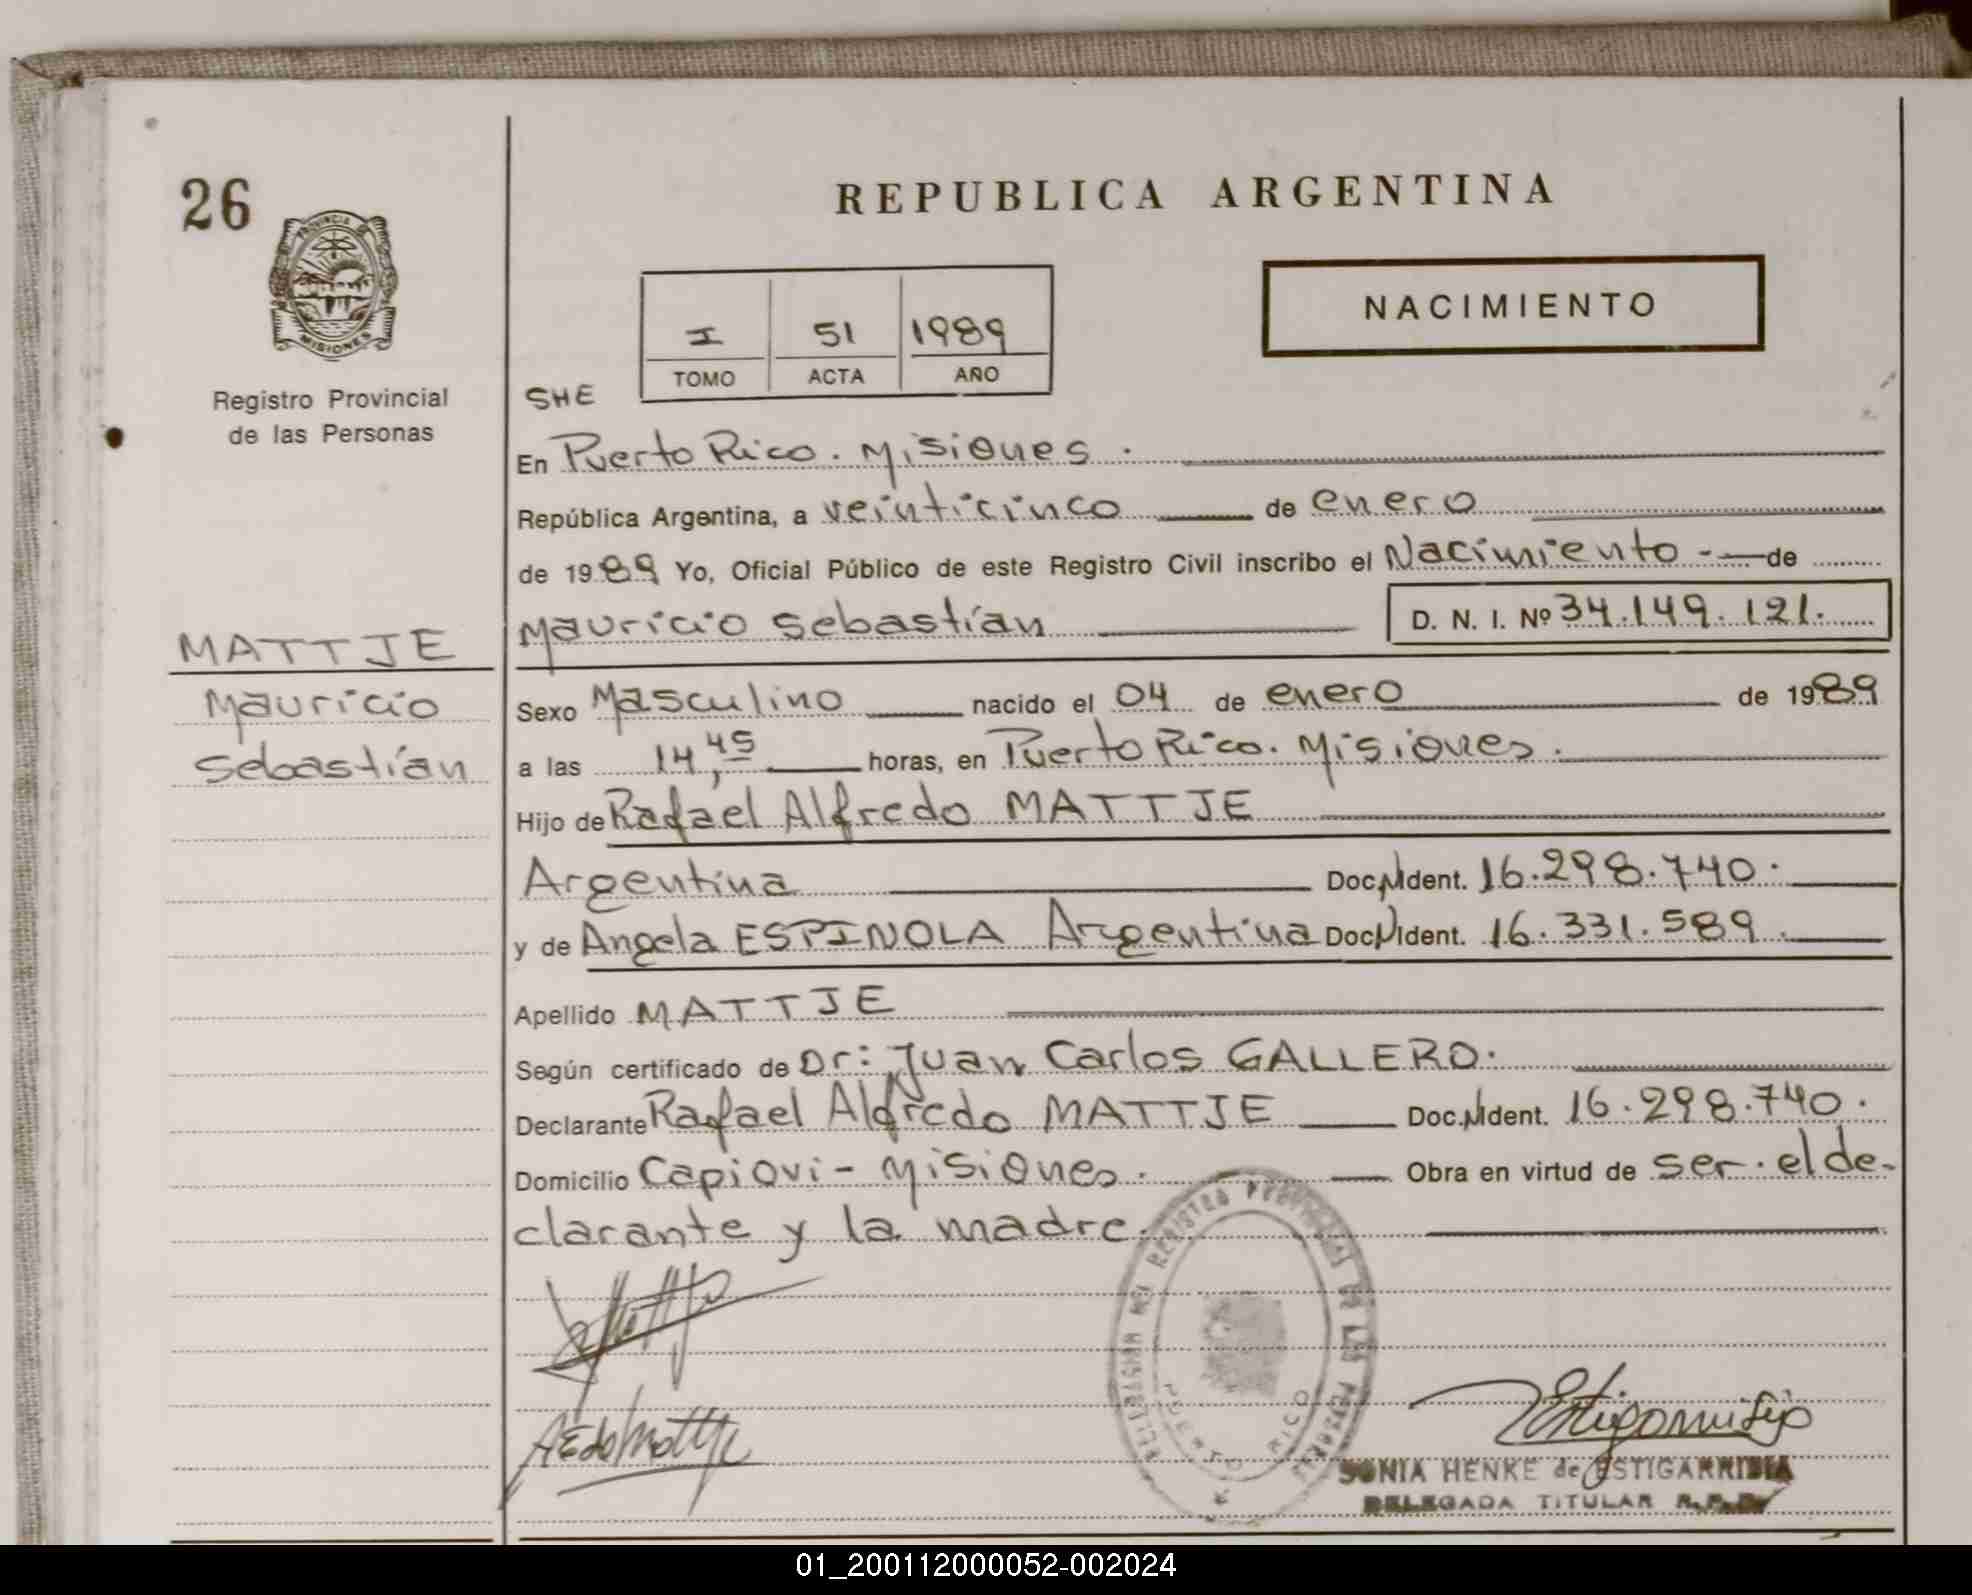 26
PROVINCIA DE
MISIONES
Registro Provincial
de las Personas
MATTJE
Mauricio
Sebastián
REPUBLICA ARGENTINA
NACIMIENTO
I 51 1989
TOMO ACTA AÑO
SHE
En Puerto Rico. Misiones.
República Argentina, a veinticinco de enero
de 1989 Yo, Oficial Público de este Registro Civil inscribo el Nacimiento - de
Mauricio Sebastián D. N. I. Nº 34.149.121.
Sexo Masculino nacido el 04 de enero de 1989
a las 14,45 horas, en Puerto Rico. Misiones.
Hijo de Rafael Alfredo MATTJE
Argentina Doc. N Ident. 16.298.740.
y de Angela ESPINOLA Argentina Doc. N Ident. 16.331.589.
Apellido MATTJE
Según certificado de Dr: Juan Carlos GALLERO.
Declarante Rafael Alfredo MATTJE Doc. N Ident. 16.298.740.
Domicilio Capiovi - Misiones. Obra en virtud de ser el de-
clarante y la madre.
DELEGACION DEL REGISTRO PROVINCIAL DE LAS PERSONAS
PUERTO RICO
SONIA HENKE de ESTIGARRIBIA
DELEGADA TITULAR R.P.P.
01_200112000052-002024